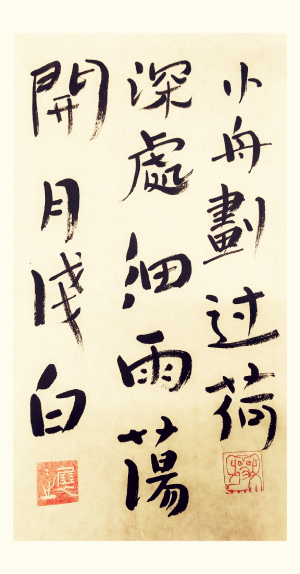 小舟劃过荷
深處细雨蕩
開月淺白